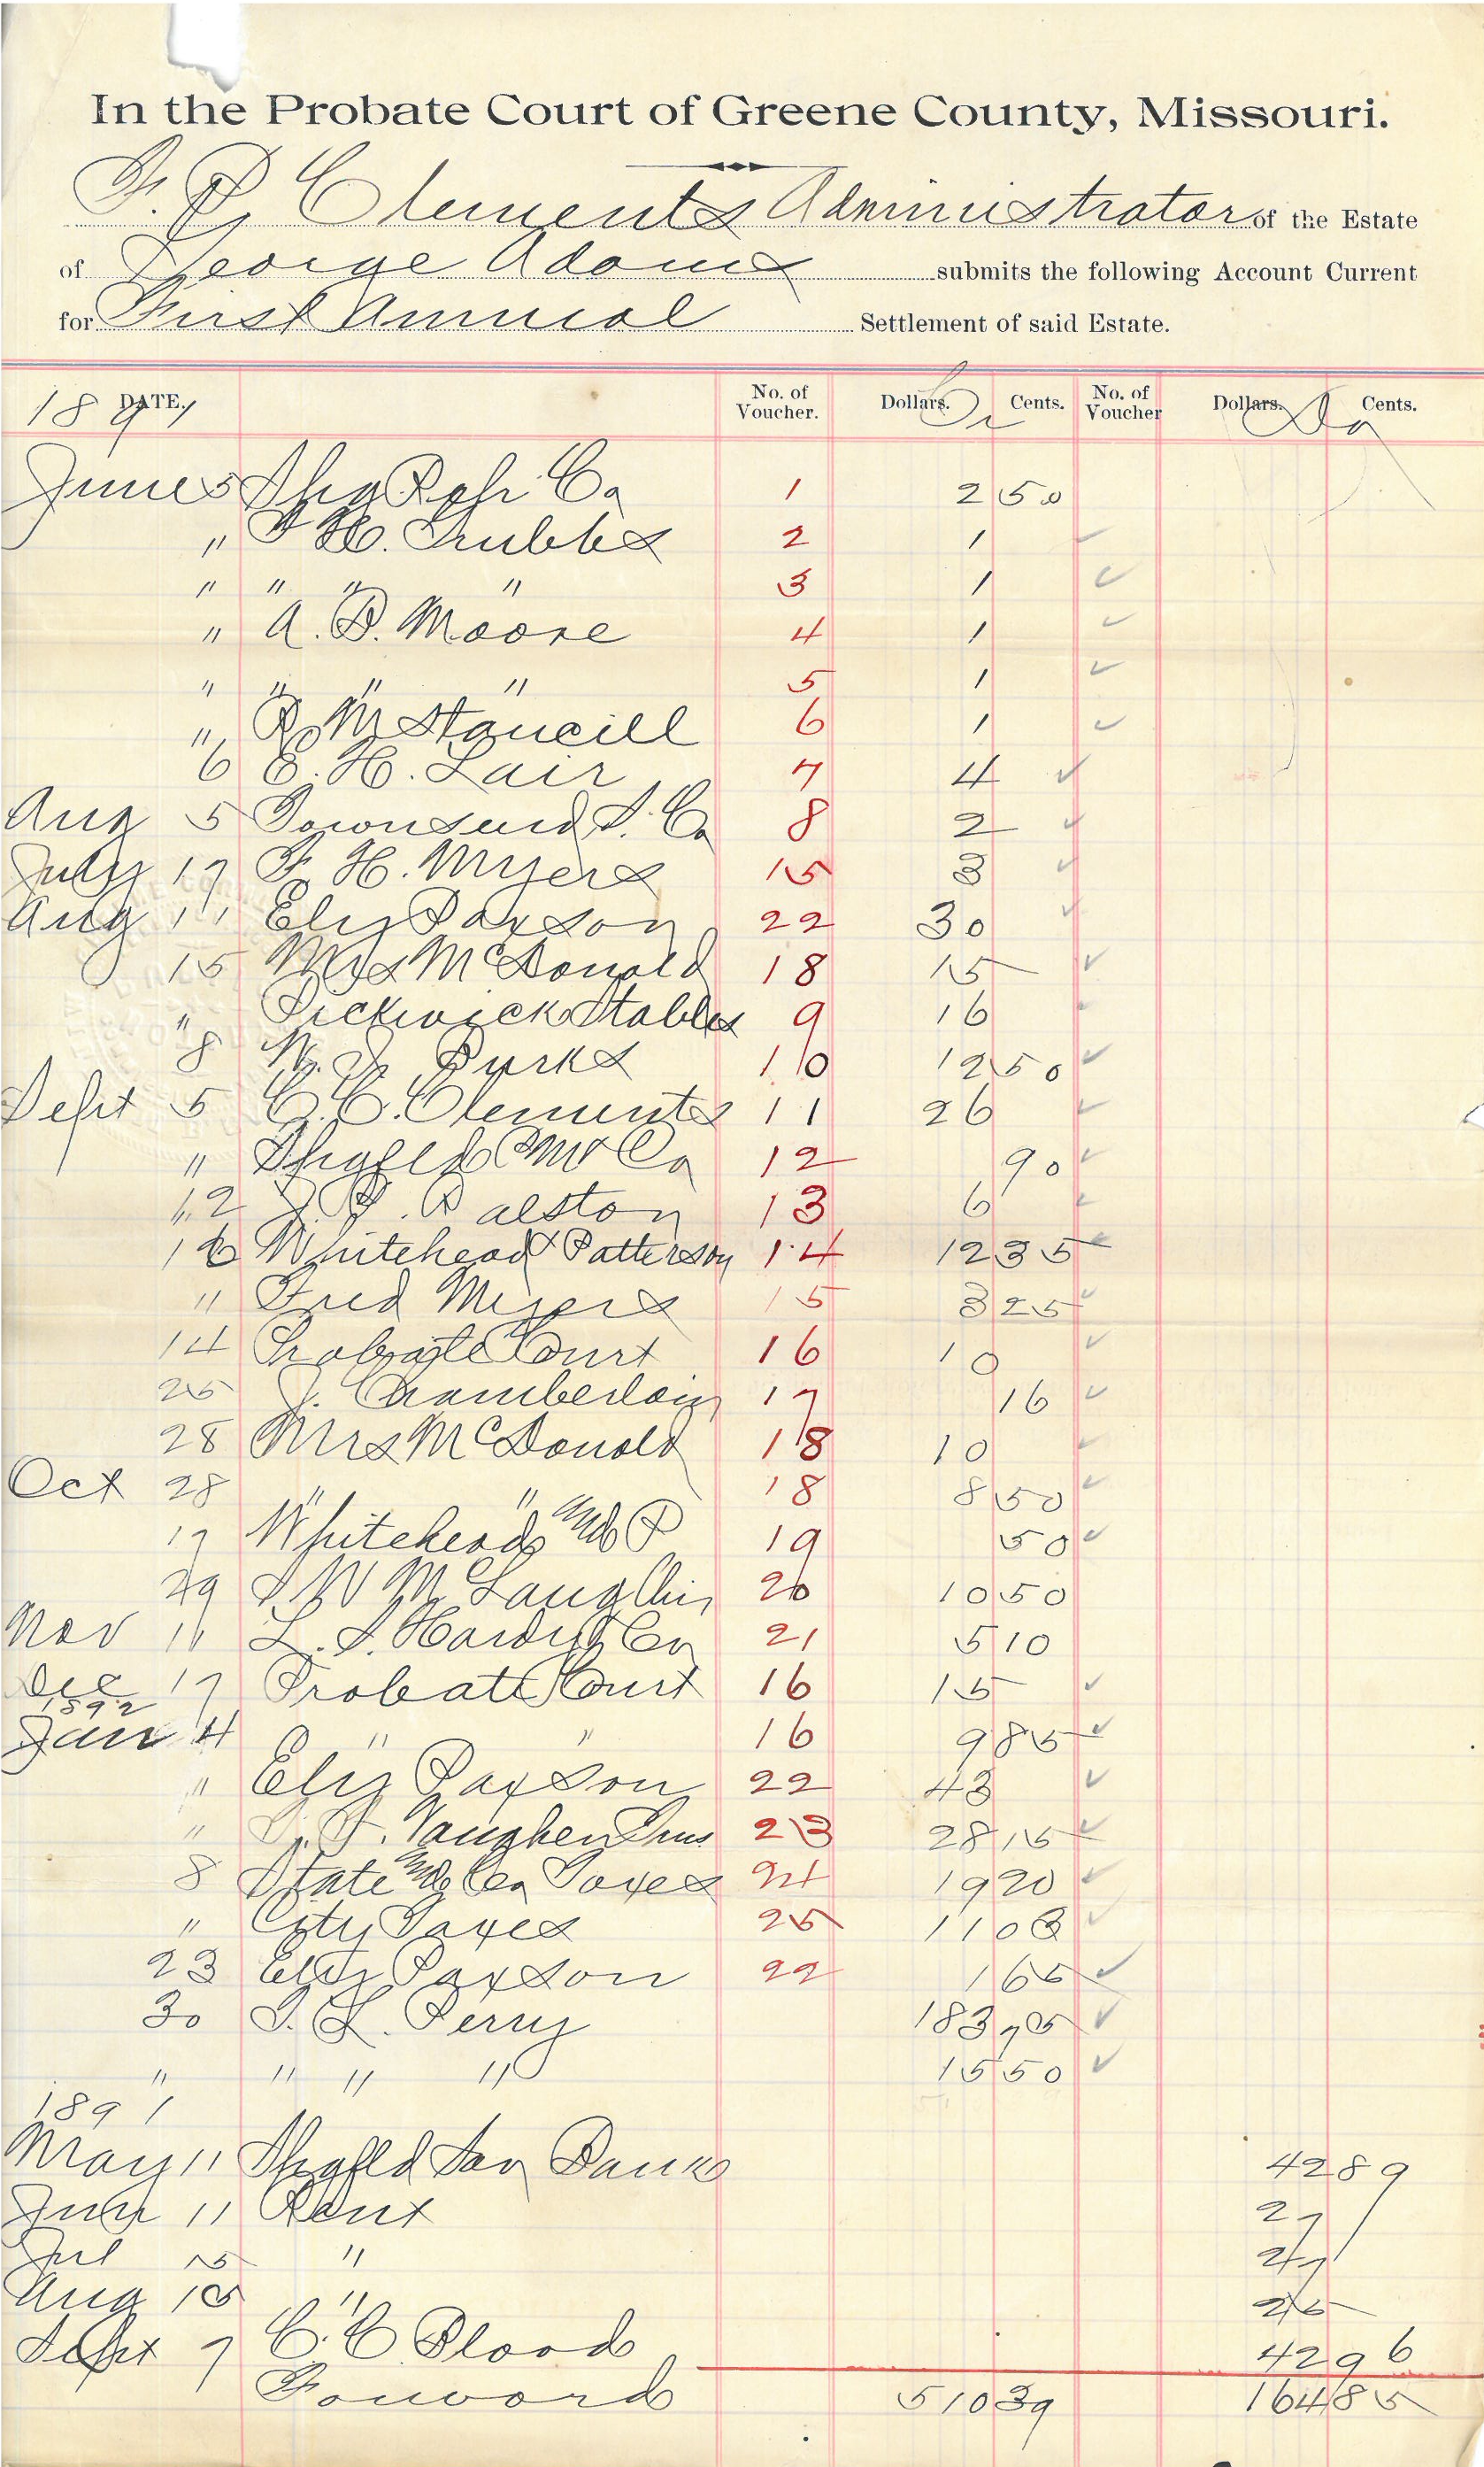 In the Probate Court of Greene County, Missouri.
F. P. Clements Administrator of the Estate
of George Adams submits the following Account Current
for First Annual Settlement of said Estate.
DATE. No. of Voucher. Dollars. Cents. No. of Voucher Dollars. Cents.
1891 Cr Dr
June 5 Co 1 2 50
" H. Grubbs 2 1
" " " " 3 1
" A. B. Moore 4 1
" " " " 5 1
" R M Stancill 6 1
6 E. H. Lair 7 4
Aug 5 Townsend S. Co 8 2
July 17 F. H. Myers 15 3
Aug 11 Eliz Paxson 22 30
15 Mrs McDonald 18 15
" Pickwick Stables 9 16
8 Burks 10 12 50
Sept 5 C. C. Clements 11 26
" Spgfeld Co 12 90
12 Ralston 13 6
16 Whitehead & Patterson 14 12 35
" Fred Myers 15 3 25
14 Probate Court 16 10
25 J. Chamberlain 17 16
28 Mrs McDonald 18 10
Oct 28 " " 18 8 50
17 Whitehead and P 19 50
29 S W McLaughlin 20 10 50
Nov 11 L. S. Hardy & Co 21 5 10
Dec 17 Probate Court 16 15
1892
Jan 4 " " 16 9 85
" Eliz Paxson 22 43
" Vaughen Ins 23 28 15
8 State and Co Taxes 24 19 20
" City Taxes 25 11 03
23 Eliz Paxson 22 1 65
30 Perry 183 75
" " " " 15 50
1891
May 11 Spgfeld Sav Bank 42 89
June 11 Rent 27
Jul 15 " 27
Aug 15 " 25
Sept 7 C. C Blood 42 96
Forward 510 39 164 85